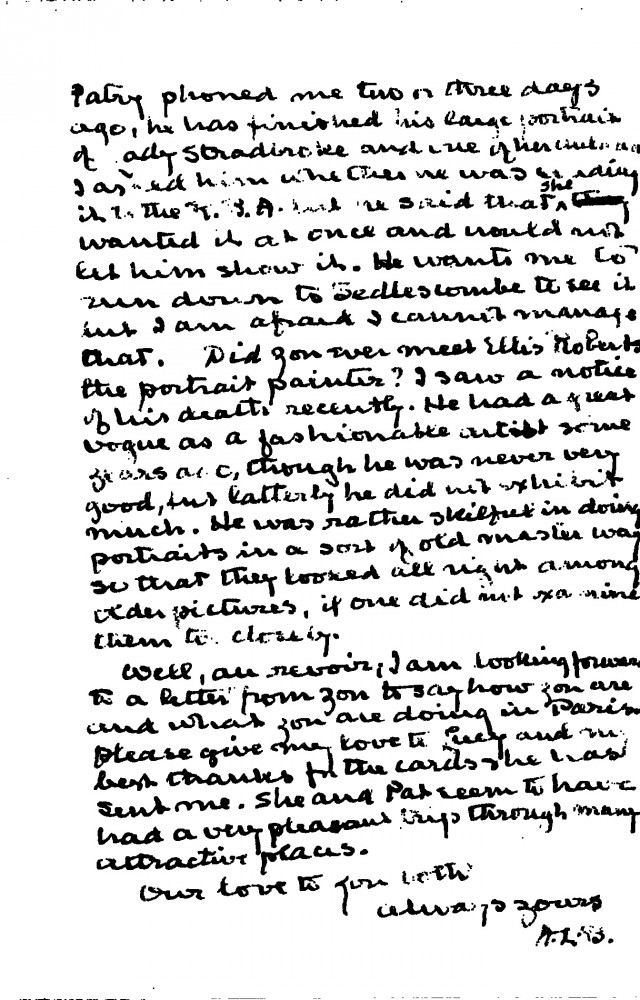 Patry phoned me two or three days
ago, he has finished his large portrait
of Lady Stradbroke and one of her
I asked him whether he was sending
it to the R. B. A. but he said that she
wanted it at once and would not
let him show it. He wants me to
run down to Sedlescombe to see it
but I am afraid I cannot manage
that. Did you ever meet Ellis Roberts
the portrait painter? I saw a notice
of his death recently. He had a great
vogue as a fashionable artist some
years ago, though he was never very
good, but latterly he did not exhibit
much. He was rather skilful in doing
portraits in a sort of old master way
so that they looked all right among
older pictures, if one did not examine
them too closely.
Well, au revoir, I am looking forward
to a letter from you to say how you are
and what you are doing in Paris.
Please give my love to Lucy and my
best thanks for the cards she has
sent me. She and Pat seem to have
had a very pleasant trip through many
attractive places.
Our love to you both
always yours
A.L.B.